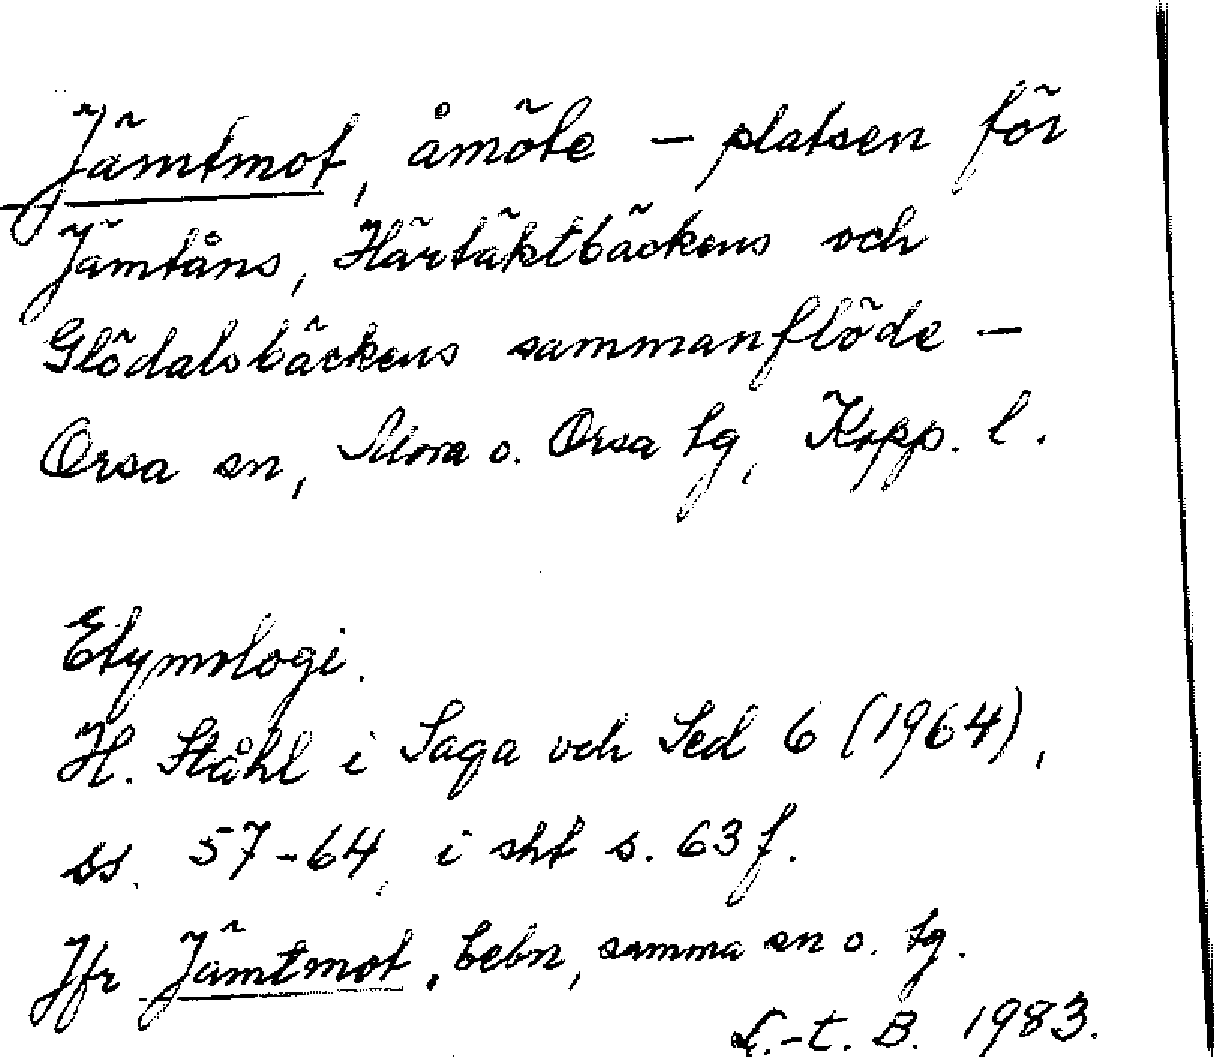 Jämtmot, åmöte – platsen för
Jämtåns, Härtäktbäckens och
Glödalsbäckens sammanflöde –
Orsa sn, Mora o. Orsa tg, Kopp. l.
Etymologi.
H. Ståhl i Saga och Sed 6 (1964),
ss. 57-64, i sht s. 63 f.
Jfr Jämtmot, bebn, samma sn o. tg.
L.-t. B. 1983.